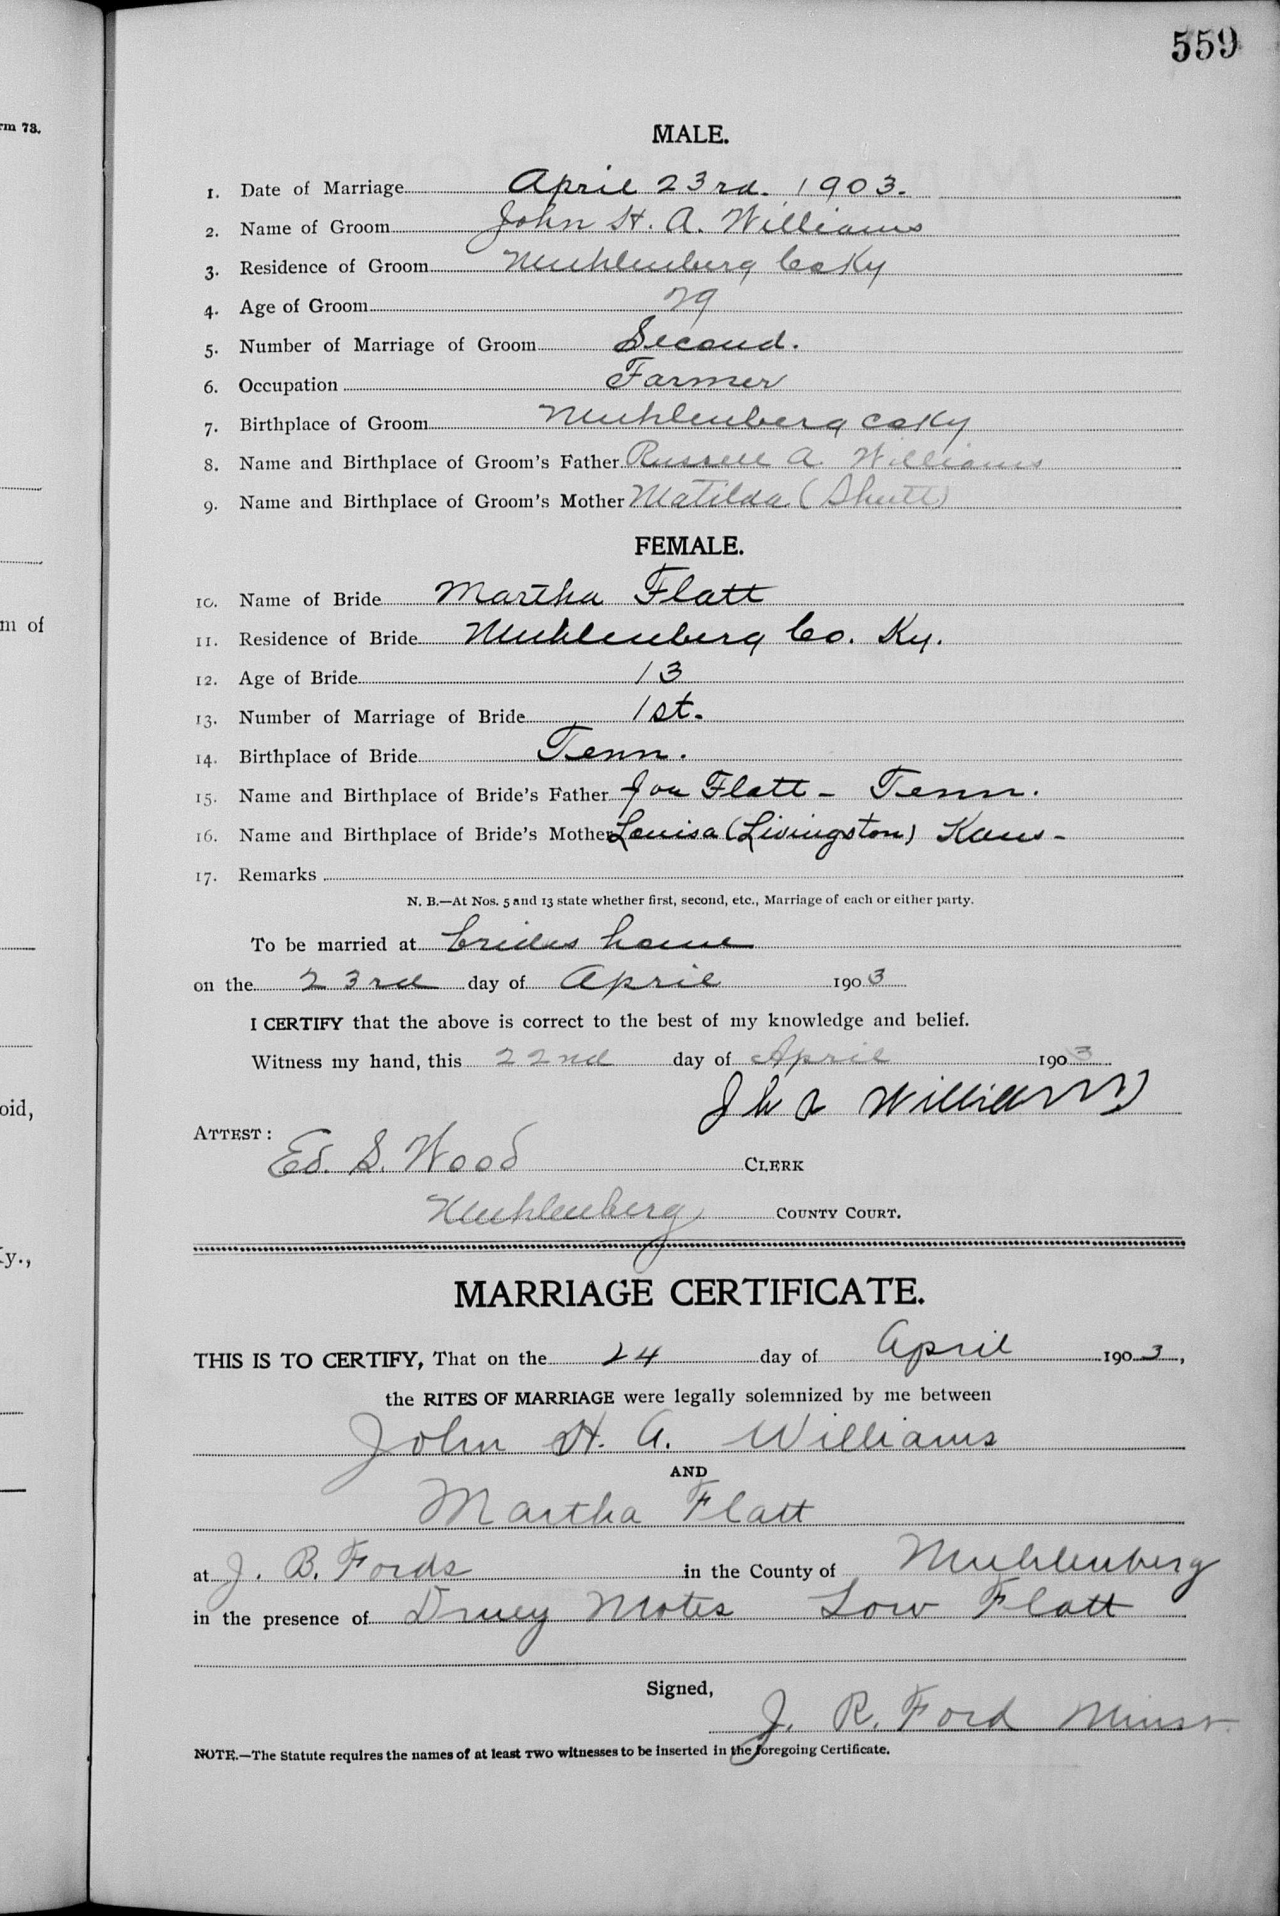 559
rm 73.
MALE.
1. Date of Marriage April 23rd. 1903.
2. Name of Groom John H. A. Williams
3. Residence of Groom Muhlenberg Co Ky
4. Age of Groom 29
5. Number of Marriage of Groom Second.
6. Occupation Farmer
7. Birthplace of Groom Muhlenberg Co Ky
8. Name and Birthplace of Groom's Father Russell A. Williams
9. Name and Birthplace of Groom's Mother Matilda (Shutt)
FEMALE.
10. Name of Bride Martha Flatt
m of
11. Residence of Bride Muhlenberg Co. Ky.
12. Age of Bride 13
13. Number of Marriage of Bride 1st.
14. Birthplace of Bride Tenn.
15. Name and Birthplace of Bride's Father Joe Flatt - Tenn.
16. Name and Birthplace of Bride's Mother Louisa (Livingston) Kans-
17. Remarks
N. B.—At Nos. 5 and 13 state whether first, second, etc., Marriage of each or either party.
To be married at brides home
on the 23rd day of April 1903
I CERTIFY that the above is correct to the best of my knowledge and belief.
Witness my hand, this 22nd day of April 1903
oid,
Williams
ATTEST:
Ed. S. Wood CLERK
Muhlenberg COUNTY COURT.
Ky.,
MARRIAGE CERTIFICATE.
THIS IS TO CERTIFY, That on the 24 day of April 1903,
the RITES OF MARRIAGE were legally solemnized by me between
John H. A. Williams
AND
Martha Flatt
at J. B. Fords in the County of Muhlenberg
in the presence of Druey Motes Low Flatt
Signed,
J. R. Ford Minst.
NOTE.—The Statute requires the names of at least TWO witnesses to be inserted in the foregoing Certificate.